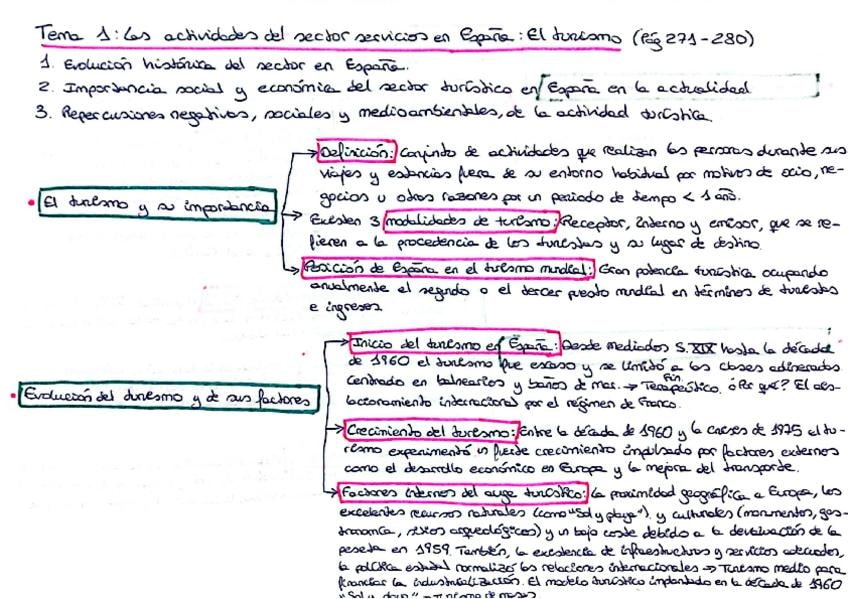 Tema 1: Las actividades del sector servicios en España: El turismo (Pág 271-280)
1. Evolución histórica del sector en España.
2. Importancia social y económica del sector turístico en España en la actualidad
3. Repercusiones negativas, sociales y medioambientales, de la actividad turística.
• El turismo y su importancia
→ Definición: Conjunto de actividades que realizan las personas durante sus
viajes y estancias fuera de su entorno habitual por motivos de ocio, ne-
gocios u otras razones por un periodo de tiempo < 1 año.
→ Existen 3 modalidades de turismo: Receptor, Interno y emisor, que se re-
fieren a la procedencia de los turistas y su lugar de destino.
→ Posición de España en el turismo mundial: Gran potencia turística ocupando
anualmente el segundo o el tercer puesto mundial en términos de turistas
e ingresos.
• Evolución del turismo y de sus factores
→ Inicio del turismo en España: Desde mediados S.XIX hasta la década
de 1960 el turismo fue escaso y se limitó a las clases adineradas
centrado en balnearios y baños de mar. → Fin Terapéutico. ¿Por qué? El ais-
lacionamiento internacional por el régimen de Franco.
→ Crecimiento del turismo: Entre la década de 1960 y la crisis de 1975 el tu-
rismo experimentó un fuerte crecimiento impulsado por factores externos
como el desarrollo económico en Europa y la mejora del transporte.
→ Factores internos del auge turístico: La proximidad geográfica a Europa, los
excelentes recursos naturales (como "Sol y playa") y culturales (monumentos, gas-
tronomía, sitios arqueológicos) y un bajo coste debido a la devaluación de la
peseta en 1959. También, la existencia de infraestructuras y servicios adecuados,
la política estatal normalizó las relaciones internacionales → Turismo medio para
financiar la industrialización. El modelo turístico implantado en la década de 1960
"Sol y playa" → Turismo de masas